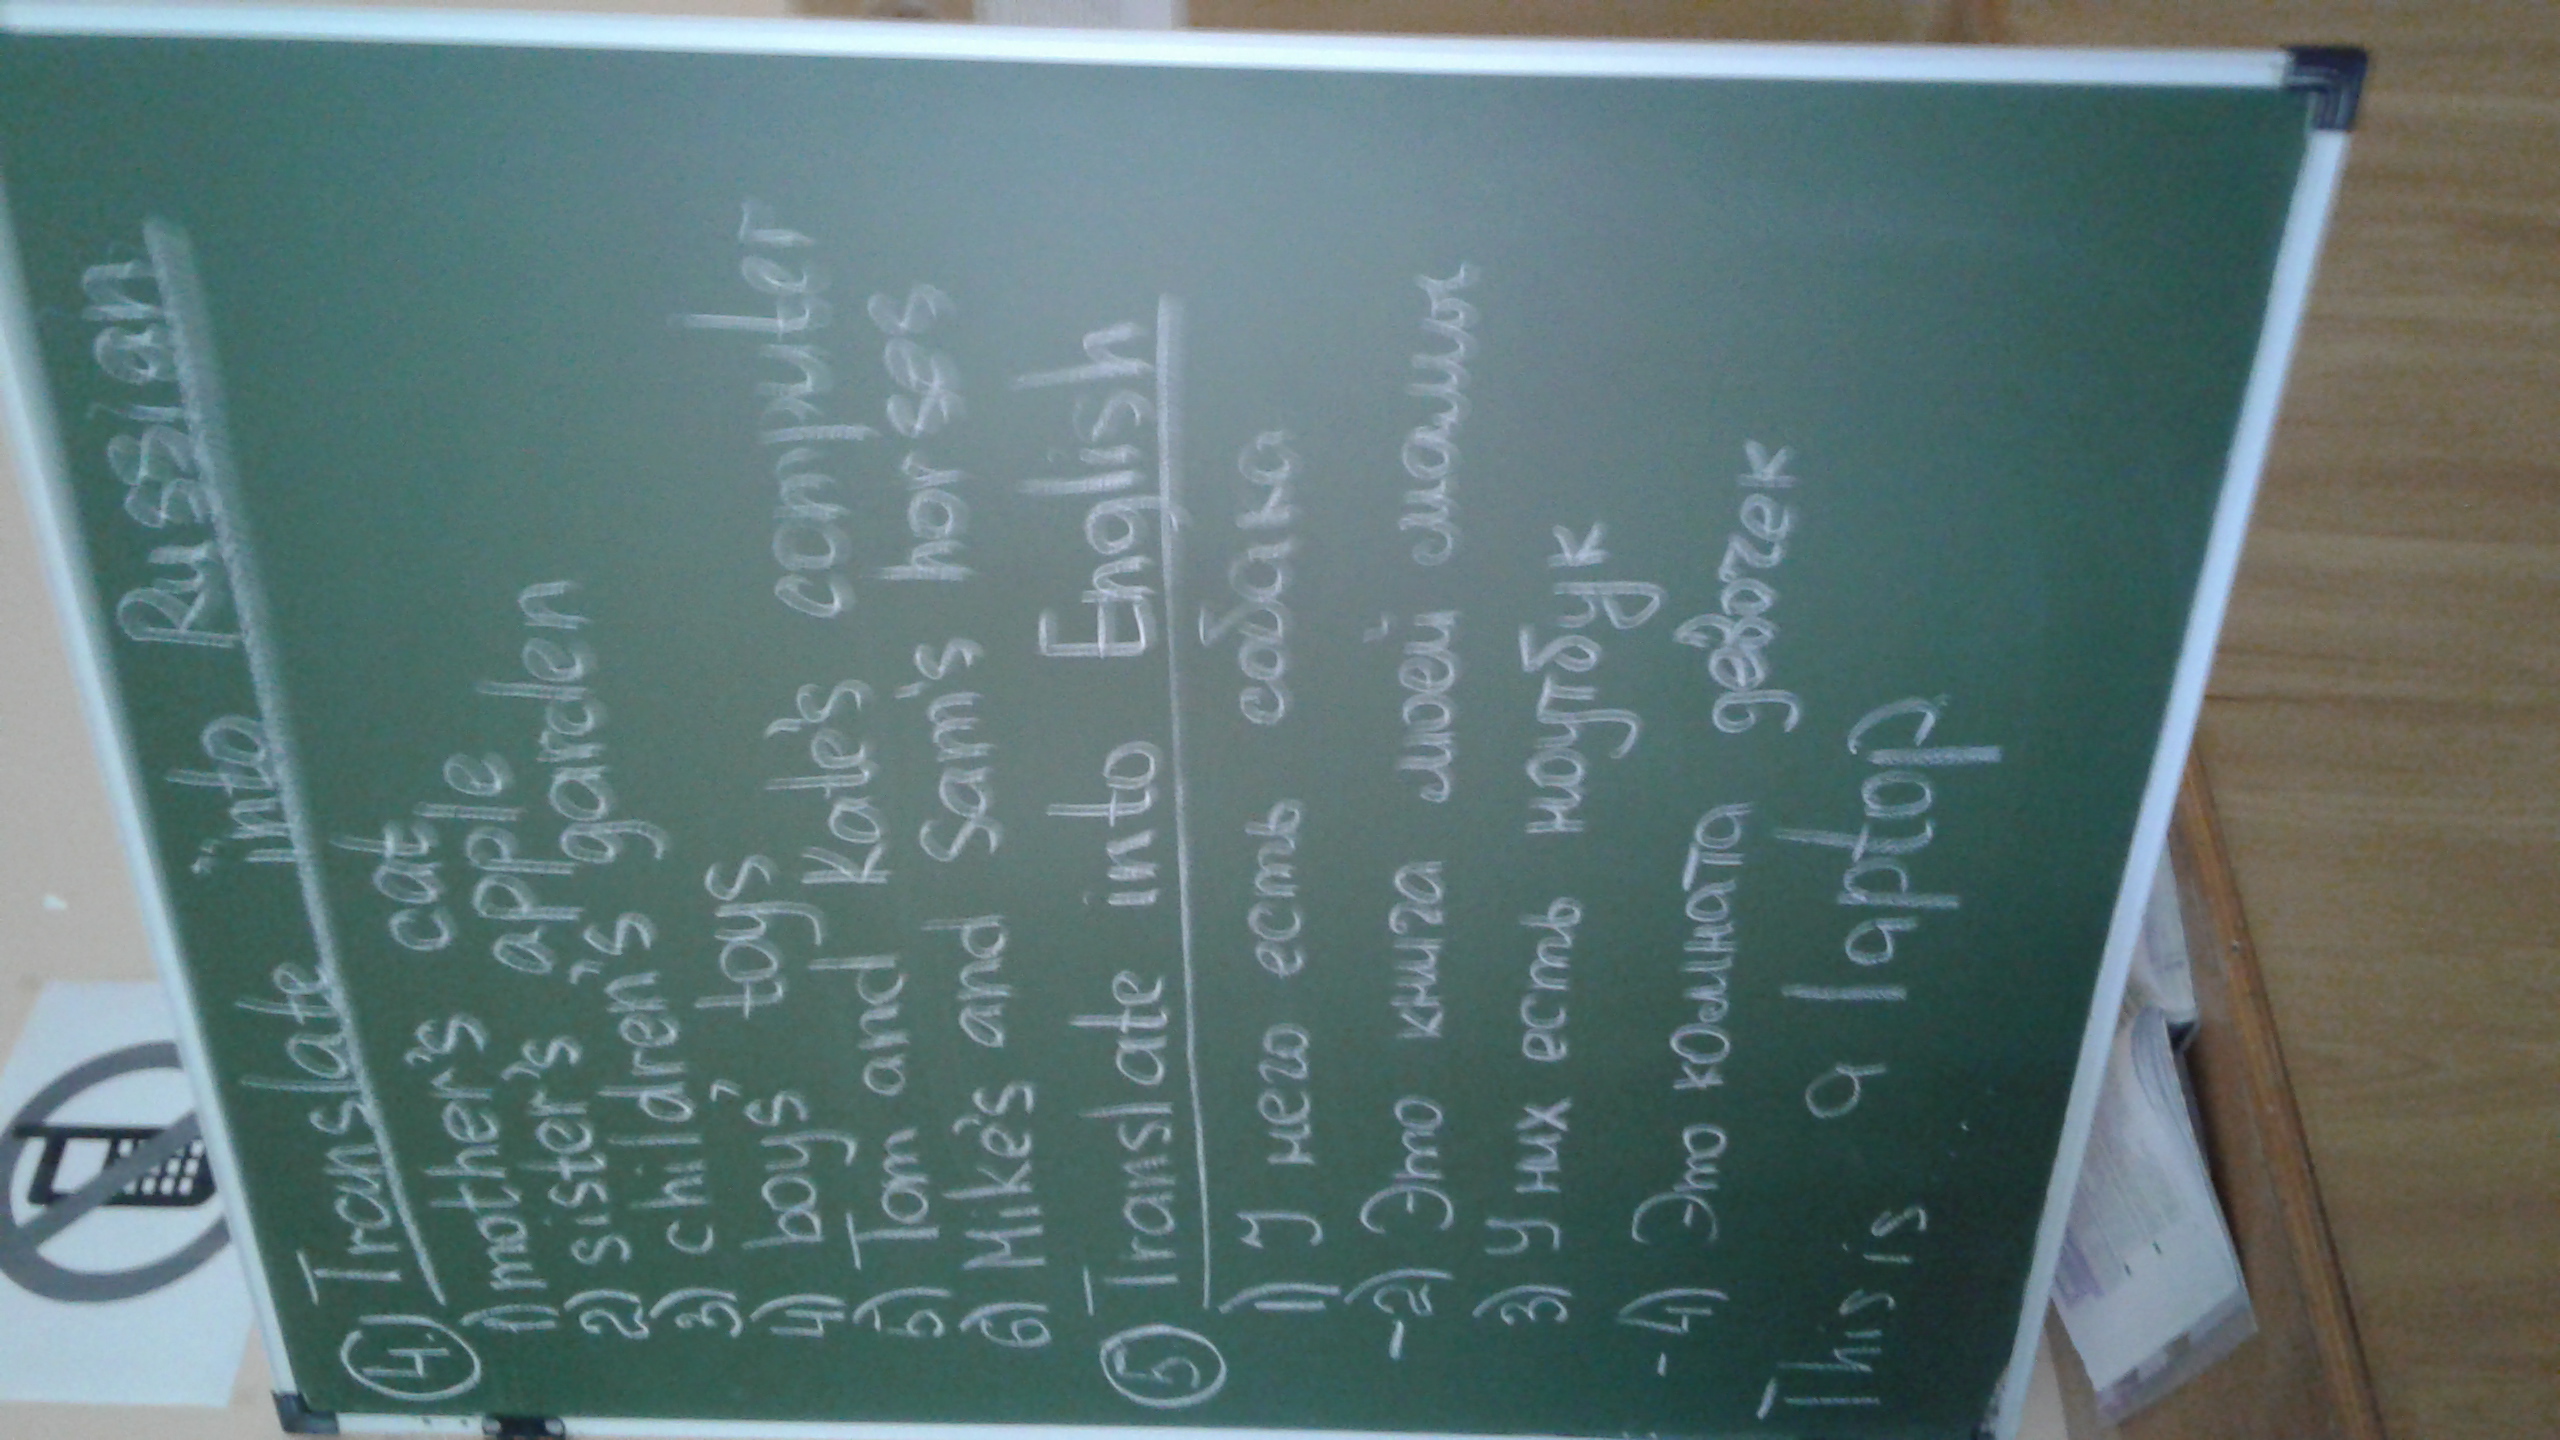 4. Translate into Russian
1) mother's cat
2) sister's apple
3) children's garden
4) boys' toys
5) Tom and Kate's computer
6) Mike's and Sam's horses
5 Translate into English
1) У него есть собака
-2) Это книга моей мамы
3) У них есть ноутбук
-4) Это комната девочек
This is a laptop